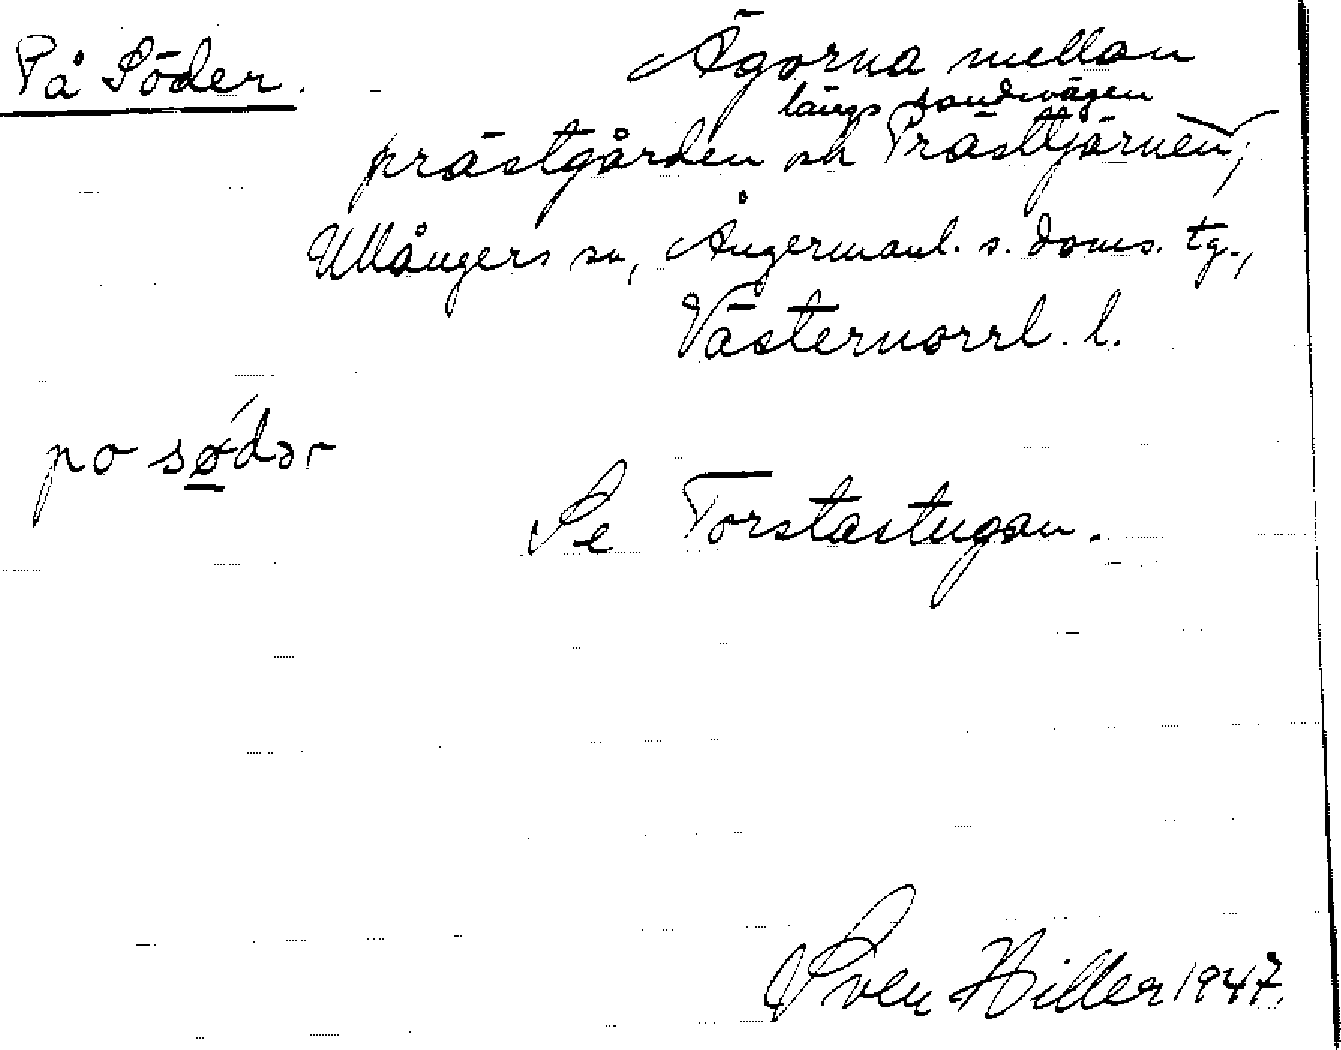 På Söder.
Ägorna mellan
längs sandvägen
prästgården och Prästtjärnen,
Ullångers sn, Ångermanl. s. doms. tg.,
Västernorrl. l.
po sǿdər
Se Torstastugan.
Sven Hiller 1947.